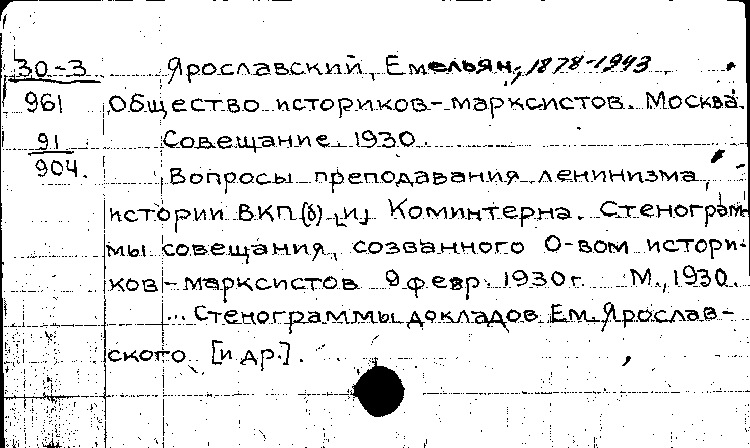 30-3 Ярославский, Емельян, 1878-1943
961 Общество историков-марксистов. Москва.
91 Совещание. 1930.
904. Вопросы преподавания ленинизма,
истории ВКП(б) [и] Коминтерна. Стенограм-
мы совещания, созванного О-вом истори-
ков-марксистов 9 февр. 1930г. М., 1930.
... Стенограммы докладов Ем. Ярослав-
ского [и др.].